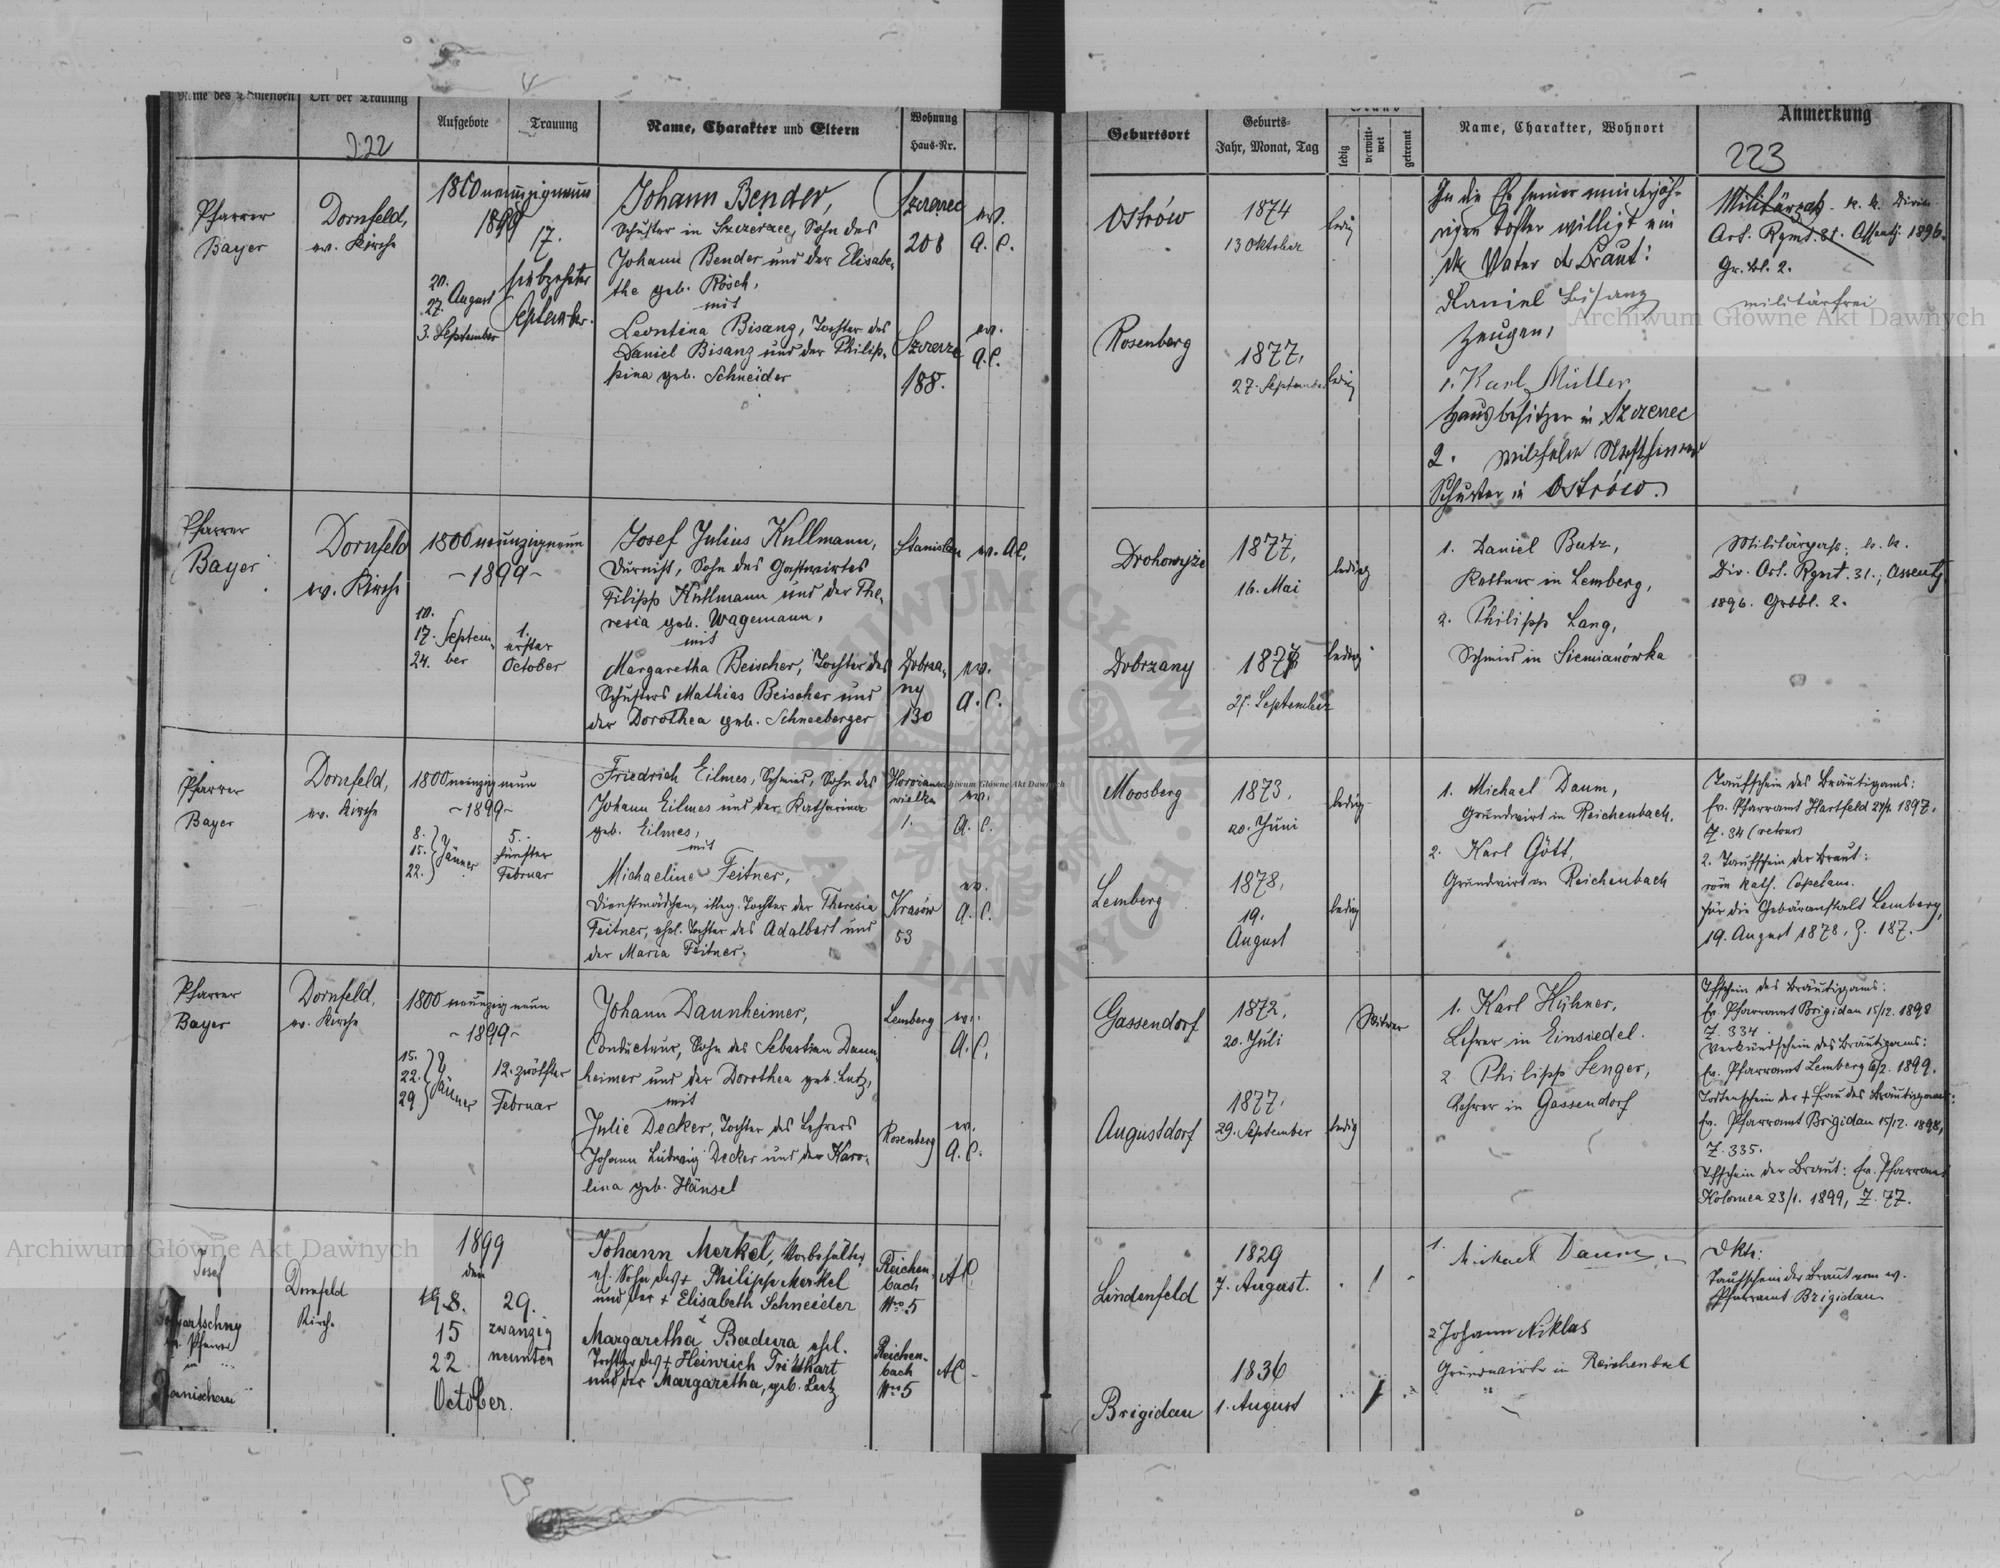 Name des Trauenden
Ort der Trauung
Aufgebote
Trauung
Name, Charakter und Eltern
Wohnung
Haus-Nr.
222
Pfarrer
Bayer
Dornfeld,
ev. Kirche
1800neunzigneun
1899
20.
27. August
3. September
17.
siebzehnter
September.
Johann Bender,
Schuster in Szczerzec, Sohn des
Johann Bender und der Elisabe-
the geb. Rösch,
mit
Leontina Bisanz, Tochter des
Daniel Bisanz und der Philip-
pina geb. Schneider
Szczerzec
208
ev.
A. C.
Szczerzec
188.
ev.
A. C.
Pfarrer
Bayer
Dornfeld
ev. Kirche
1800neunzigneun
- 1899 -
10.
17. Septem-
24. ber
1.
erster
October
Josef Julius Kullmann,
Durnist, Sohn des Gastwirtes
Filipp Kullmann und der The-
resia geb. Wagemann,
mit
Margaretha Beischer, Tochter des
Schusters Mathias Beischer und
der Dorothea geb. Schneeberger
Stanislau
ev. A.C.
Dobrza-
ny
130
ev.
A. C.
Pfarrer
Bayer
Dornfeld,
ev. Kirche
1800neunzigneun
- 1899 -
8.
15. Jänner
22.
5.
fünfter
Februar
Friedrich Eilmes, Schmied, Sohn des
Johann Eilmes und der Katharina
geb. Eilmes,
mit
Michaeline Feitner,
Dienstmädchen, illeg. Tochter der Theresia
Feitner, ehel. Tochter des Adalbert und
der Maria Feitner.
wielka
1.
ev.
A. C.
Krasów
53
ev.
A. C.
Pfarrer
Bayer
Dornfeld,
ev. Kirche
1800 neunzigneun
- 1899 -
15.
22. Jänner
29
12. zwölfter
Februar
Johann Daunheimer,
Conducteur, Sohn des Sebastian Daun-
heimer und der Dorothea geb. Lutz,
mit
Julie Decker, Tochter des Lehrers
Johann Ludwig Decker und der Karo-
lina geb. Hänsel
Lemberg
ev.
A. C.
Rosenberg
ev.
A. C.
Josef
ev. Pfarrer
Dornfeld
Kirche
1899
den
8.
15
22
October.
29.
zwanzig
neunten
Johann Merkel, Vorbehälter
eh. Sohn des + Philipp Merkel
und der + Elisabeth Schneider
Margaretha Badura ehel.
Tochter des + Heinrich Fritthart
und der Margaretha, geb. Lutz
Reichen-
bach
Nro 5
AC
Reichen-
bach
Nro 5
AC
Geburtsort
Geburts-
Jahr, Monat, Tag
Stand
ledig
verwitt-
wet
getrennt
Name, Charakter, Wohnort
Anmerkung
223
Ostrów
1874
13 Oktober
ledig
Rosenberg
1877,
27. September
ledig
In die Ehe seiner minderjäh-
rigen Tochter willigt ein
der Vater der Braut:
Daniel Bisanz
Zeugen,
1. Karl Müller,
Hausbesitzer in Szczerzec
2.
Schuster in Ostrów.
Art. Rgmt. 31. Assentj. 1896.
Gr. bl. 2.
militärfrei
Drohowyże
1877,
16. Mai
ledig
Dobrzany
1878
September
ledig
1. Daniel Butz,
Kellner in Lemberg,
2. Philipp Lang,
Schmied in Siemianówka
Militärpass. k. k.
Div. Art. Rgmt. 31., Assentj
1896. Grdbl. 2.
Moosberg
1873.
20. Juni
ledig
Lemberg
1878,
19.
August
ledig
1. Michael Daum,
Grundwirt in Reichenbach,
2. Karl Gött,
Grundwirt in Reichenbach
Taufschein des Bräutigams:
Ev. Pfarramt Hartfeld 27/4 1897.
Z. 34 (retour)
2. Taufschein der Braut:
röm. kath. Capelan.
für die Gebäranstalt Lemberg,
19. August 1878, Z. 187.
Gassendorf
1872,
20. Juli
Witwer
Augustdorf
1877.
29. September
ledig
1. Karl Hühner,
Lehrer in Einsiedel.
2. Philipp Senger,
Lehrer in Gassendorf
Tfschein des Bräutigams:
Ev. Pfarramt Brigidau 15/12. 1898
Z. 334.
Verkündschein des Bräutigams:
Ev. Pfarramt Lemberg 6/2. 1899.
Todtenschein der + Frau des Bräutigams:
Ev. Pfarramt Brigidau 15/12. 1898,
Z. 335.
Tfschein der Braut: Ev. Pfarramt
Kolomea 23/1. 1899, Z. 77.
Lindenfeld
1829
7. August.
Brigidau
1836
1. August
1. Michael Daum
2 Johann Niklas
Grundwirth in Reichenbach
Taufschein der Braut vom ev.
Pfarramt Brigidau
Archiwum Główne Akt Dawnych
Archiwum Główne Akt Dawnych
Archiwum Główne Akt Dawnych
ARCHIWUM GŁÓWNE AKT DAWNYCH